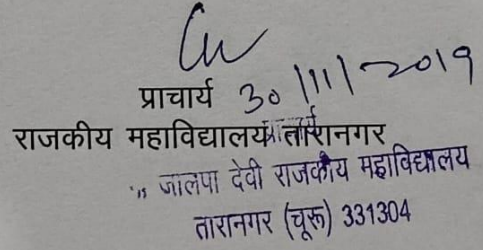 प्राचार्य 30/11/2019
राजकीय महाविद्यालय तारानगर
जालपा देवी राजकीय महाविद्यालय
तारानगर (चूरू) 331304